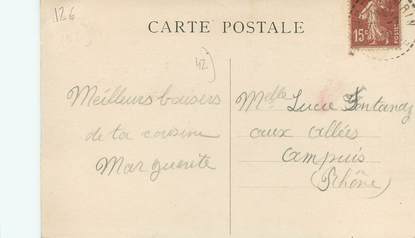 126
CARTE POSTALE
15c
42
Meilleurs baisers
de ta cousine
Marguerite
Melle Lucie Fontanez
aux allées
Ampuis
(Rhône)